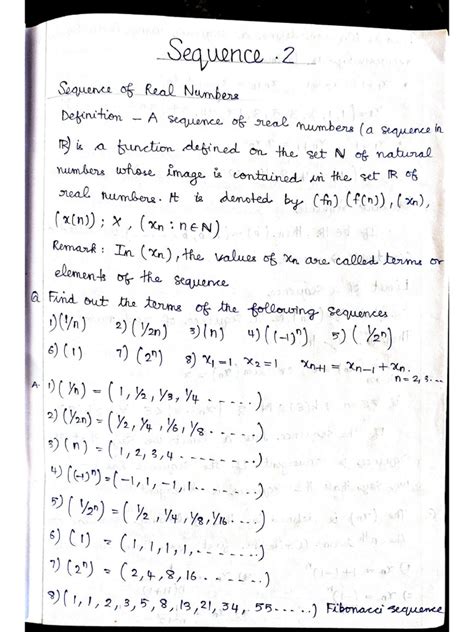 Sequence . 2
Sequence of Real Numbers
Definition – A sequence of real numbers (a sequence in
ℝ) is a function defined on the set N of natural
numbers whose image is contained in the set ℝ of
real numbers. It is denoted by (fn) (f(n)), (xn),
(x(n)); X, (xn : n ∈ N)
Remark: In (xn), the values of xn are called terms or
elements of the sequence
Q Find out the terms of the following sequences
1) (1/n) 2) (1/2n) 3) (n) 4) ((-1)ⁿ) 5) (1/2ⁿ)
6) (1) 7) (2ⁿ) 8) x1=1. x2=1 xn+1 = xn-1 + xn.
n=2, 3...
A. 1) (1/n) = (1, 1/2, 1/3, 1/4 ......)
2) (1/2n) = (1/2, 1/4, 1/6, 1/8 ......)
3) (n) = (1, 2, 3, 4 ........)
4) ((-1)ⁿ) = (-1, 1, -1, 1 ......)
5) (1/2ⁿ) = (1/2, 1/4, 1/8, 1/16 ....)
6) (1) = (1, 1, 1, 1, ......)
7) (2ⁿ) = (2, 4, 8, 16 ......)
8) (1, 1, 2, 3, 5, 8, 13, 21, 34, 55 .....) Fibonacci sequence